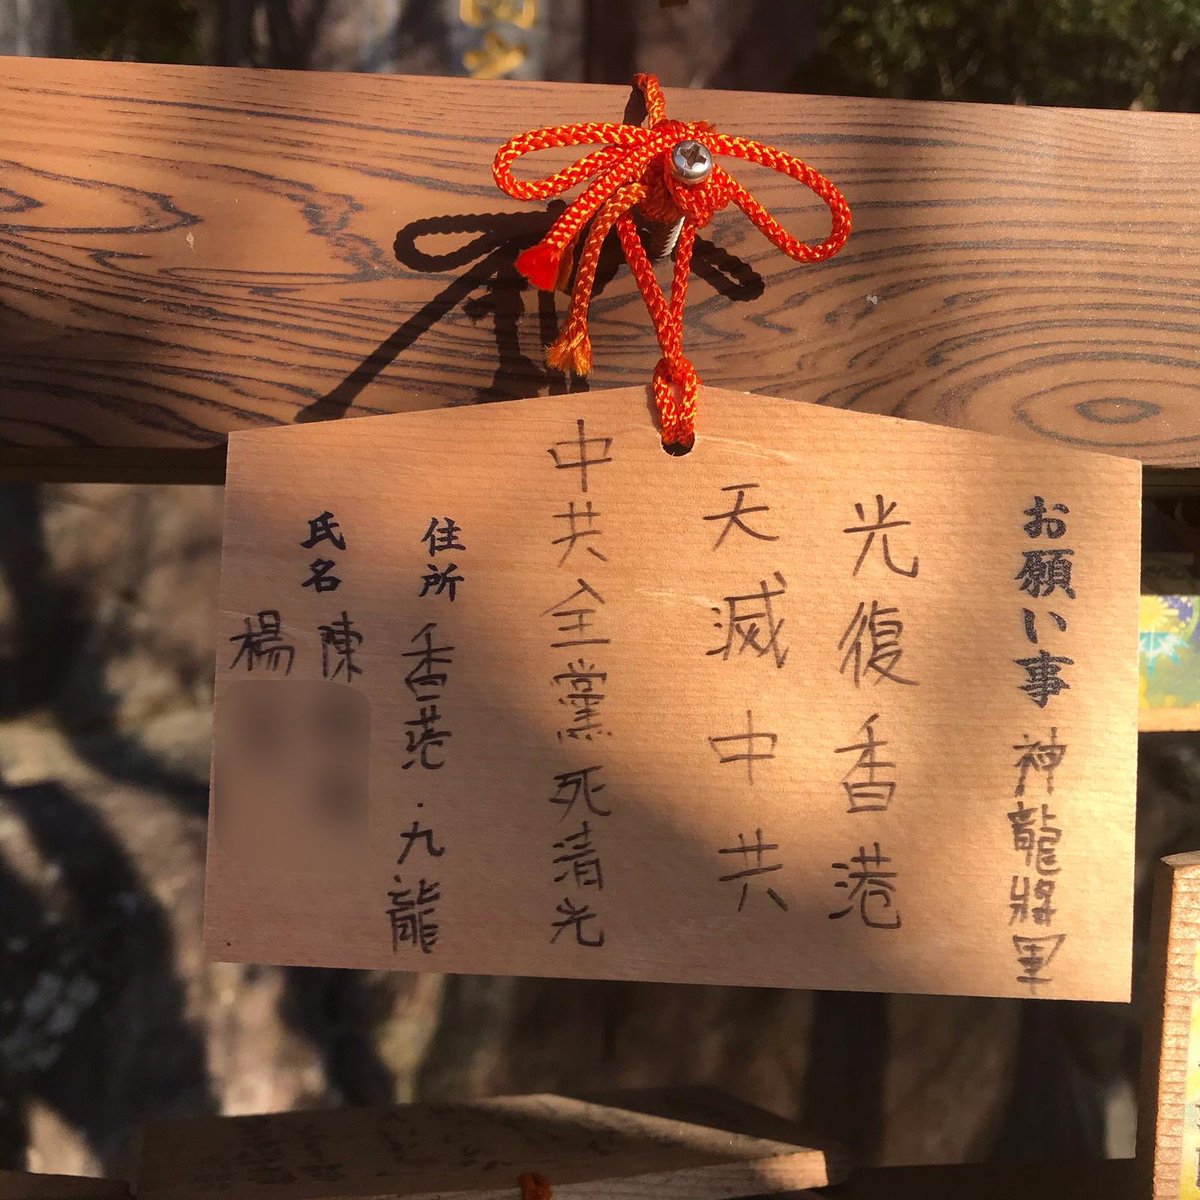 お願い事 神龍將
光復香港
天滅中共
中共全黨死清光
住所 香港・九龍
氏名 陳
楊